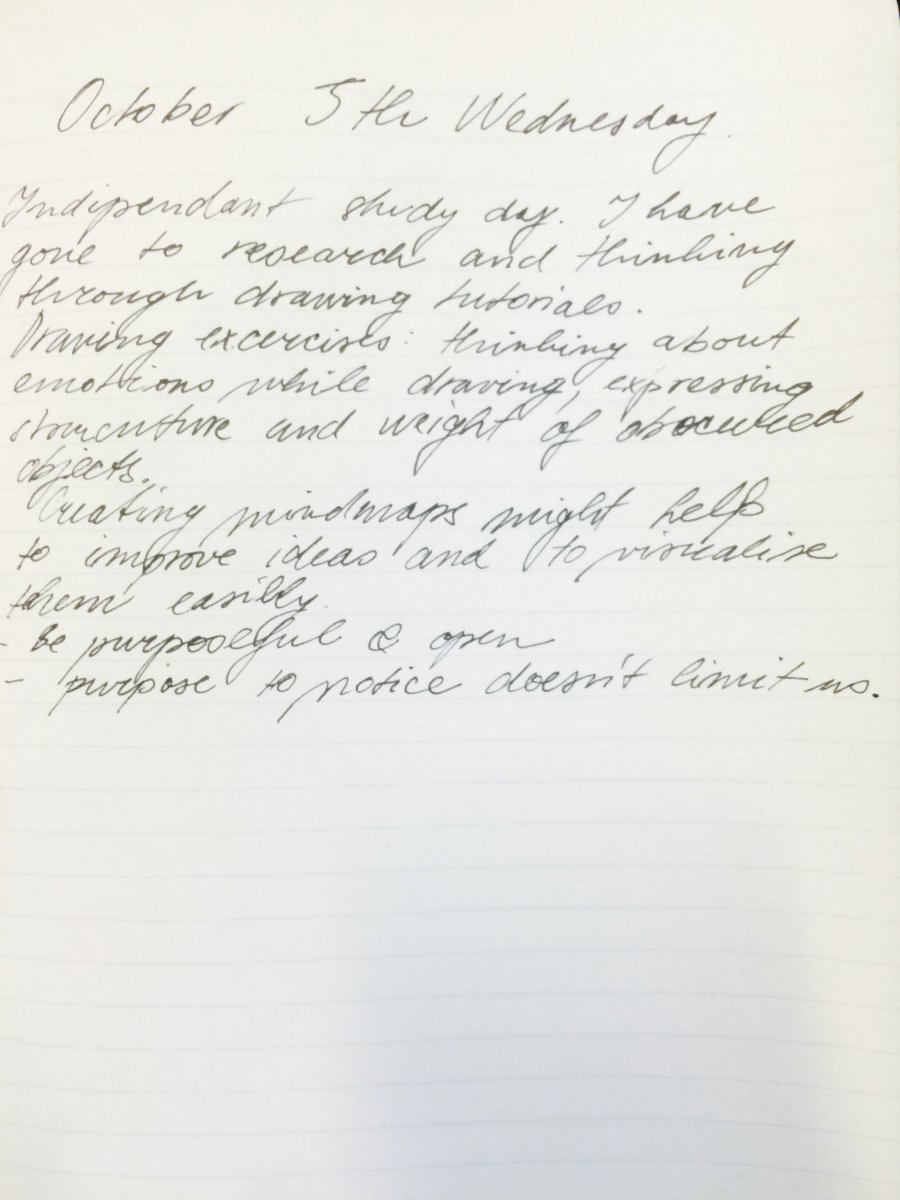 October 5th Wednesday.
Indipendant study day. I have
gone to research and thinking
through drawing tutorials.
Drawing excercises: thinking about
emotions while drawing, expressing
and weight of obscured
objects.
Creating mindmaps might help
to improve ideas and to visualise
them easilly.
- be purposeful & open
- purpose to notice doesn't limit us.